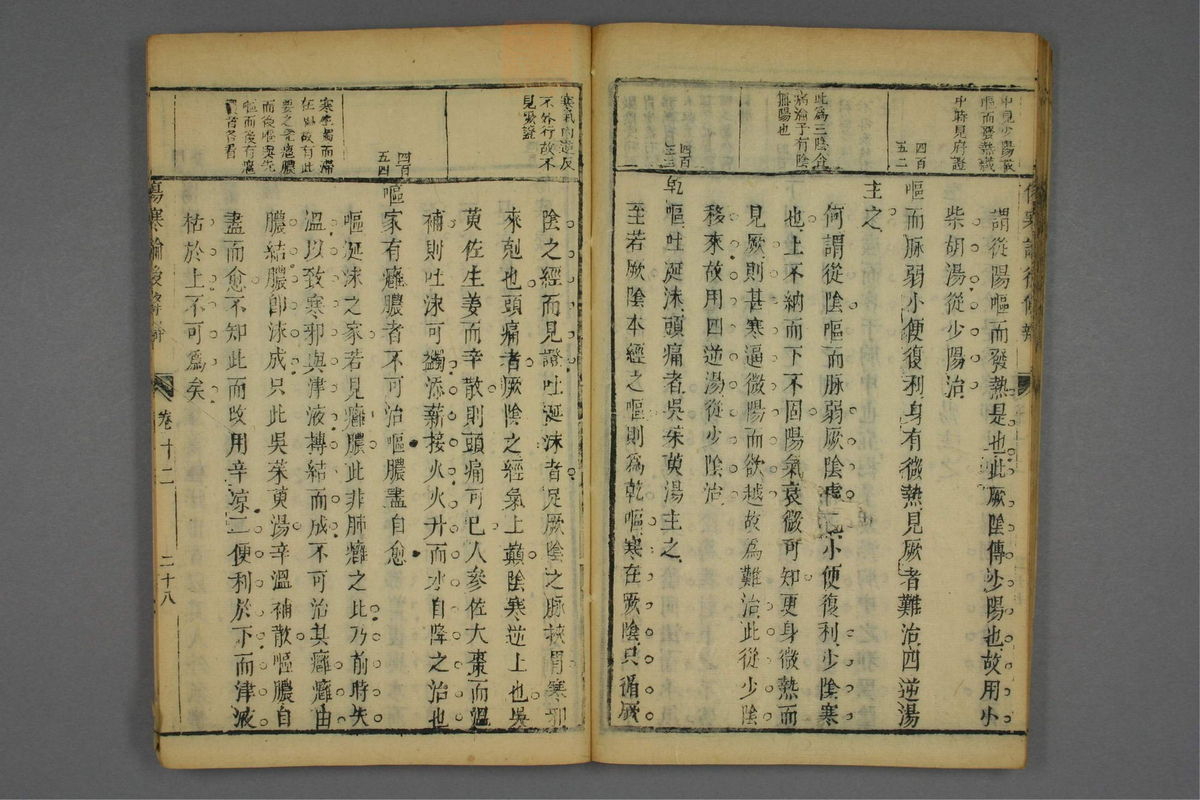 中見少陽證
嘔而發熱識
中時見府證
四百
五二
此爲三陰合
病論予有陰
無陽也
四百
五三
謂從陽嘔而發熱是也此厥陰傳少陽也故用小
柴胡湯從少陽治
嘔而脉弱小便復利身有微熱見厥者難治四逆湯
主之
何謂從陰嘔而脉弱厥陰虛也小便復利少陰寒
也上不納而下不固陽氣衰微可知更身微熱而
見厥則甚寒逼微陽而欲越故爲難治此從少陰
移來故用四逆湯從少陰治
乾嘔吐涎沫頭痛者吳茱萸湯主之
至若厥陰本經之嘔則爲乾嘔寒在厥陰只循厥
寒氣內逆反
不外行故不
見厥證
四百
五四
寒生濁而滯
任此故有此
要之先癰膿
而後嘔與先
嘔而後有癰
者各看
陰之經而見證吐涎沫者足厥陰之脉挾胃寒邪
來剋也頭痛者厥陰之經氣上巔陰寒逆上也吳
茰佐生姜而辛散則頭痛可已人參佐大棗而溫
補則吐沫可蠲添薪接火火升而水自降之治也
嘔家有癰膿者不可治嘔膿盡自愈
嘔涎沫之家若見癰膿此非肺癰之比乃前時失
溫以致寒邪與津液搏結而成不可治其癰癰由
膿結膿卽沫成只此吳茱萸湯辛溫補散嘔膿自
盡而愈不知此而改用辛凉二便利於下而津液
枯於上不可爲矣
傷寒論後條辨
卷十二
二十八